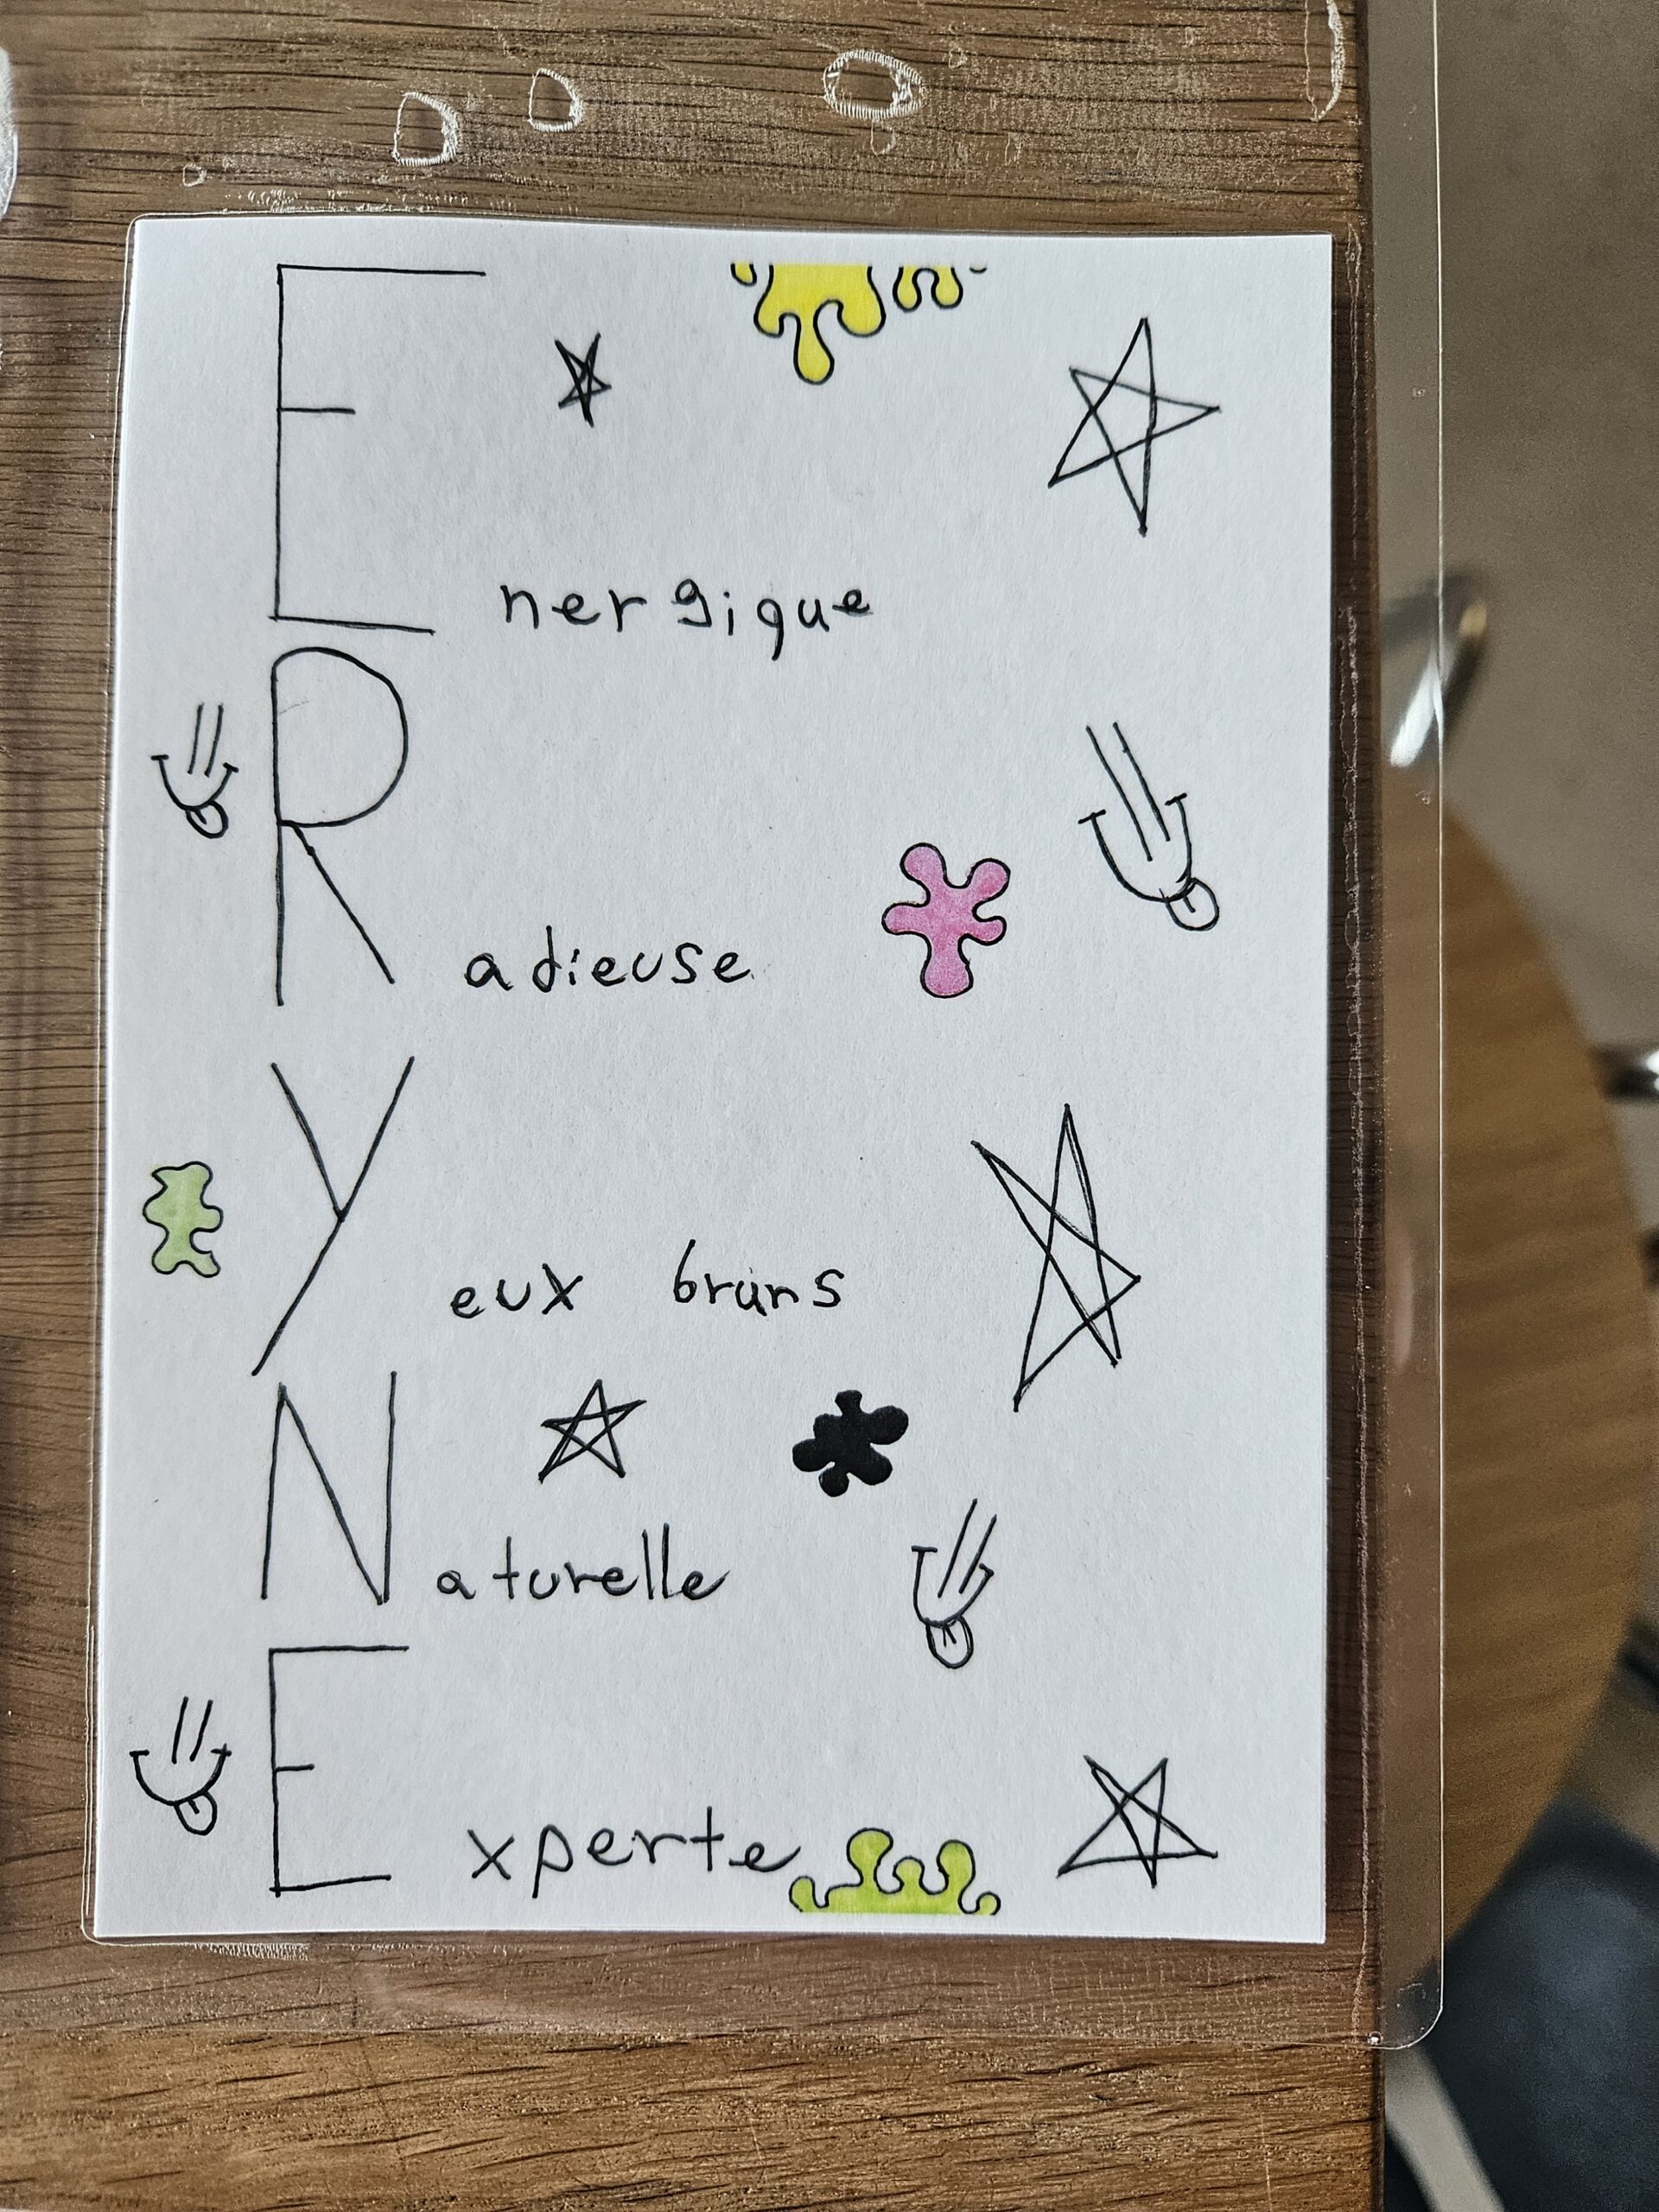 Energique
Radieuse
Yeux bruns
Naturelle
Experte